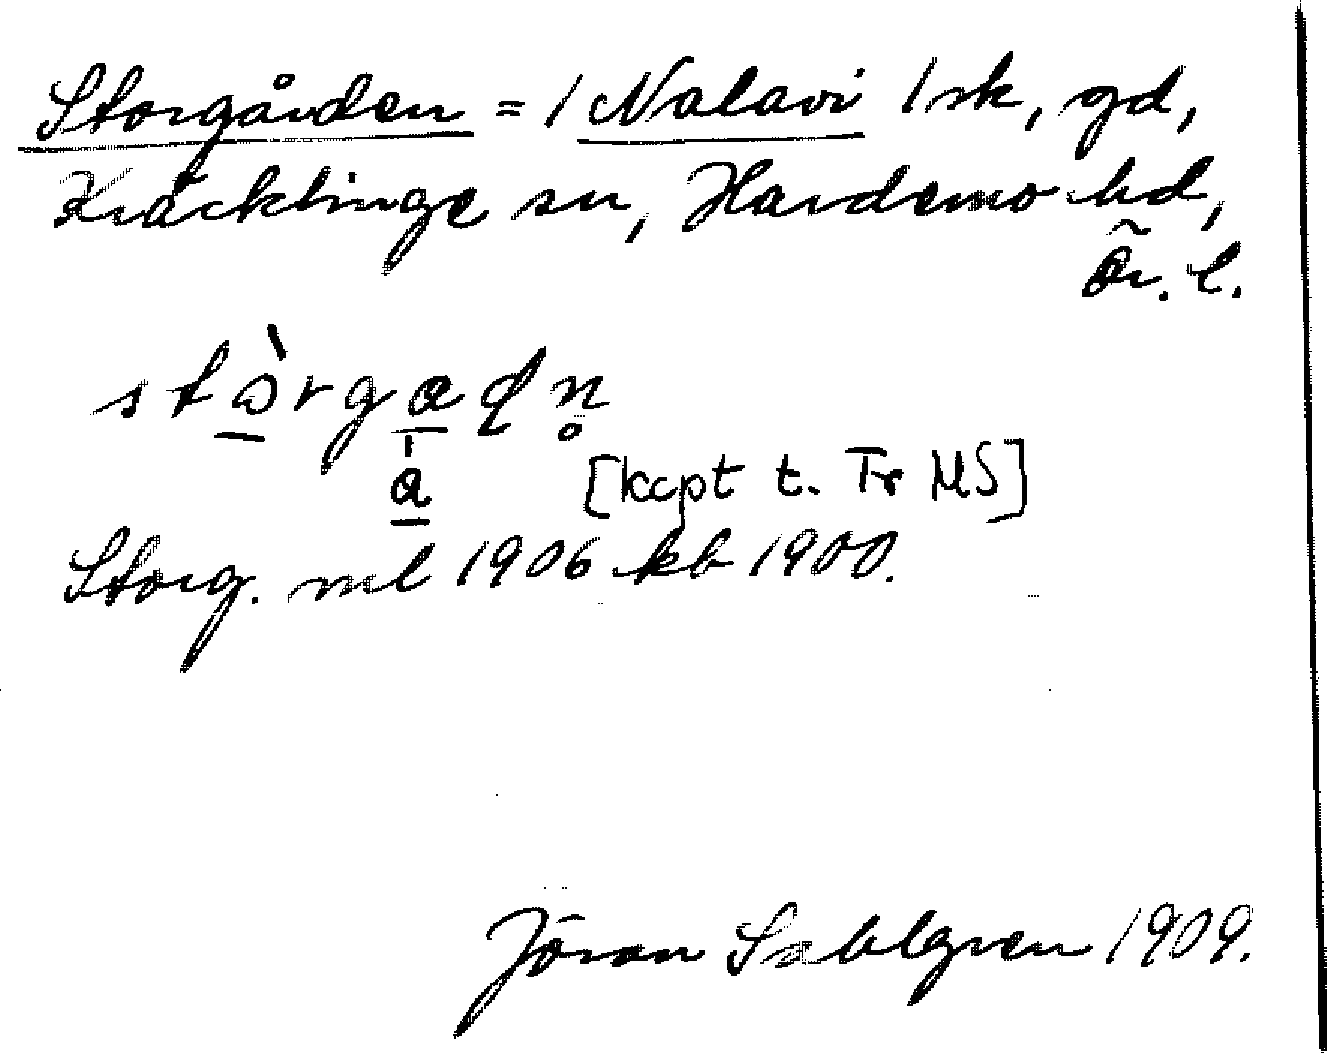 Storgården = 1 Nalavi 1 sk, gd,
Kräcklinge sn, Hardemo hd,
Ör. l.
[kcpt t. Fr MS]
Storg. ml 1906 kb 1900.
Jöran Sahlgren 1909.